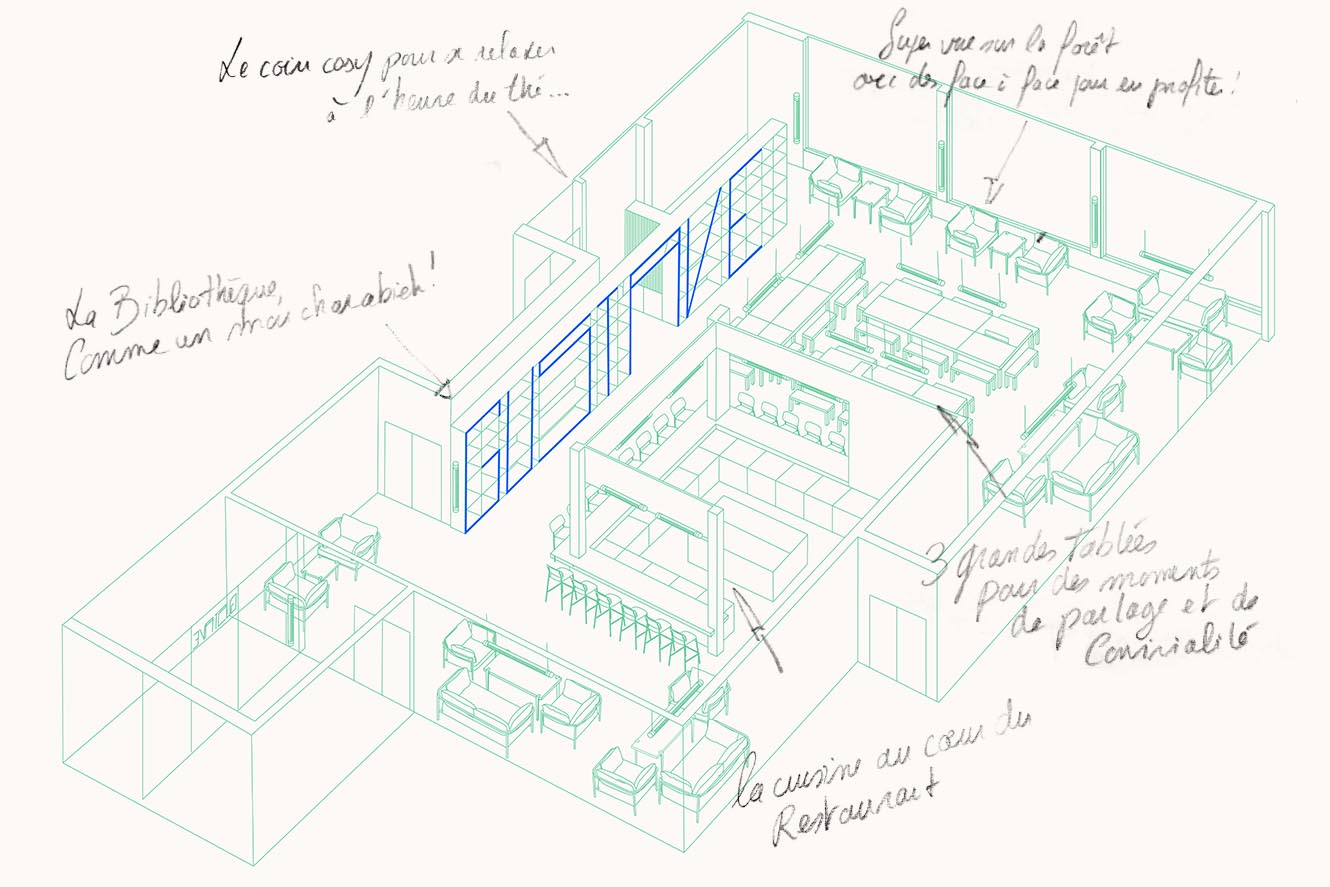 Le coin cosy pour se relaxer
à l'heure du thé...
Super vue sur la forêt
avec des face à face pour en profiter!
La Bibliothèque,
Comme un moucharabieh!
3 grandes tablées
pour des moments
de partage et de
Convivialité
la cuisine au cœur du
Restaurant